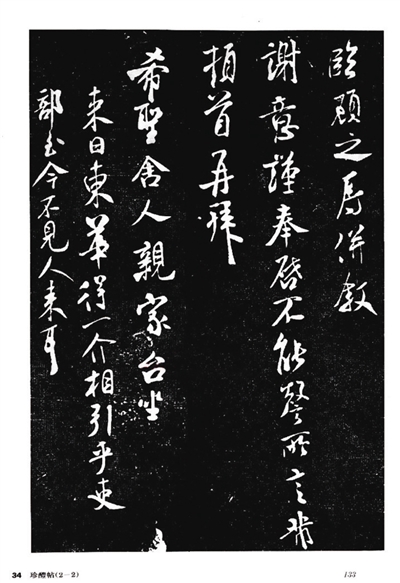 臨顧之併敘
謝意謹奉啓不能罄所言芾
頓首再拜
希聖舍人親家台坐
来日東華得一介相引乎吏
部至今不見人来耳
34 珍醴帖(2－2)
133